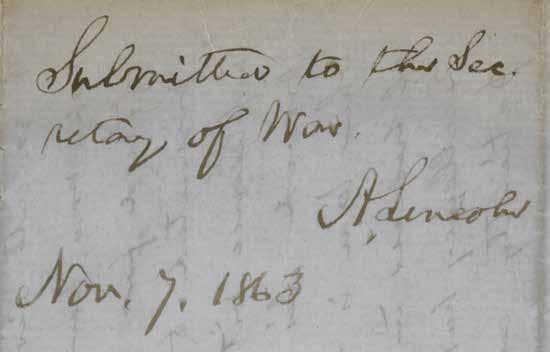 Submitted to the Sec.
retary of War.
A. Lincoln
Nov. 7. 1863